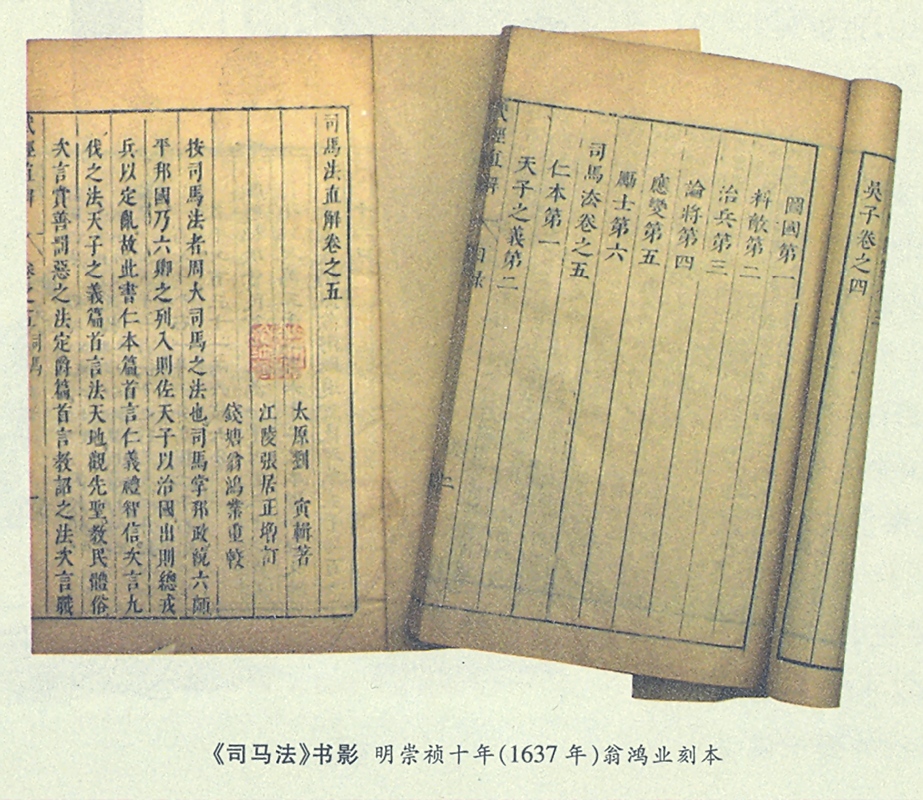 司馬法直解卷之五
太原劉　寅輯著
江陵張居正增訂
錢塘翁鴻業重較
按司馬法者周大司馬之法也司馬掌邦政統六師
平邦國乃六卿之列入則佐天子以治國出則總戎
兵以定亂故此書仁本篇首言仁義禮智信次言九
伐之法天子之義篇首言法天地觀先聖教民體俗
次言賞善罰惡之法定爵篇首言教詔之法次言職
吳子卷之四
圖國第一
料敵第二
治兵第三
論將第四
應變第五
勵士第六
司馬法卷之五
仁本第一
天子之義第二
《司马法》书影 明崇祯十年(1637年)翁鸿业刻本